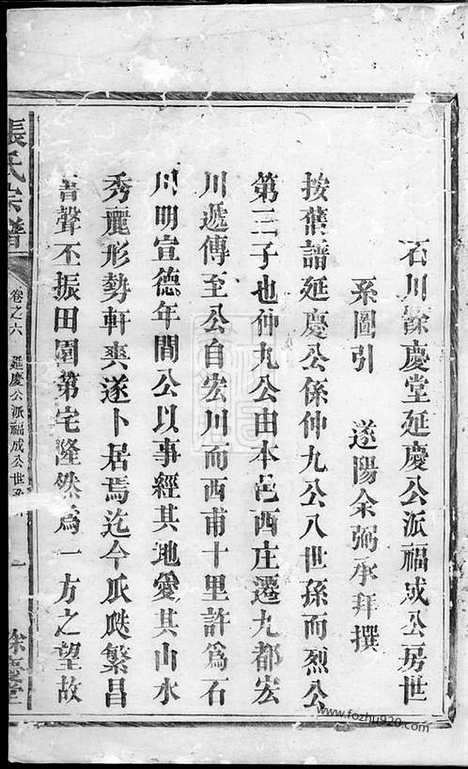 石川餘慶堂延慶公派福成公房世
系圖引　遂陽余弼承拜撰
按舊譜延慶公係仲九公八世孫而烈公
第三子也仲九公由本邑西庄遷九都宏
川遞傳至公自宏川而西甫十里許爲石
川明宣德年間公以事經其地愛其山水
秀麗形勢軒爽遂卜居焉迄今瓜瓞繁昌
書聲丕振田園第宅隆然爲一方之望故
張氏宗譜
卷之六　延慶公派福成公世系
一
餘慶堂
www.fozhu920.com